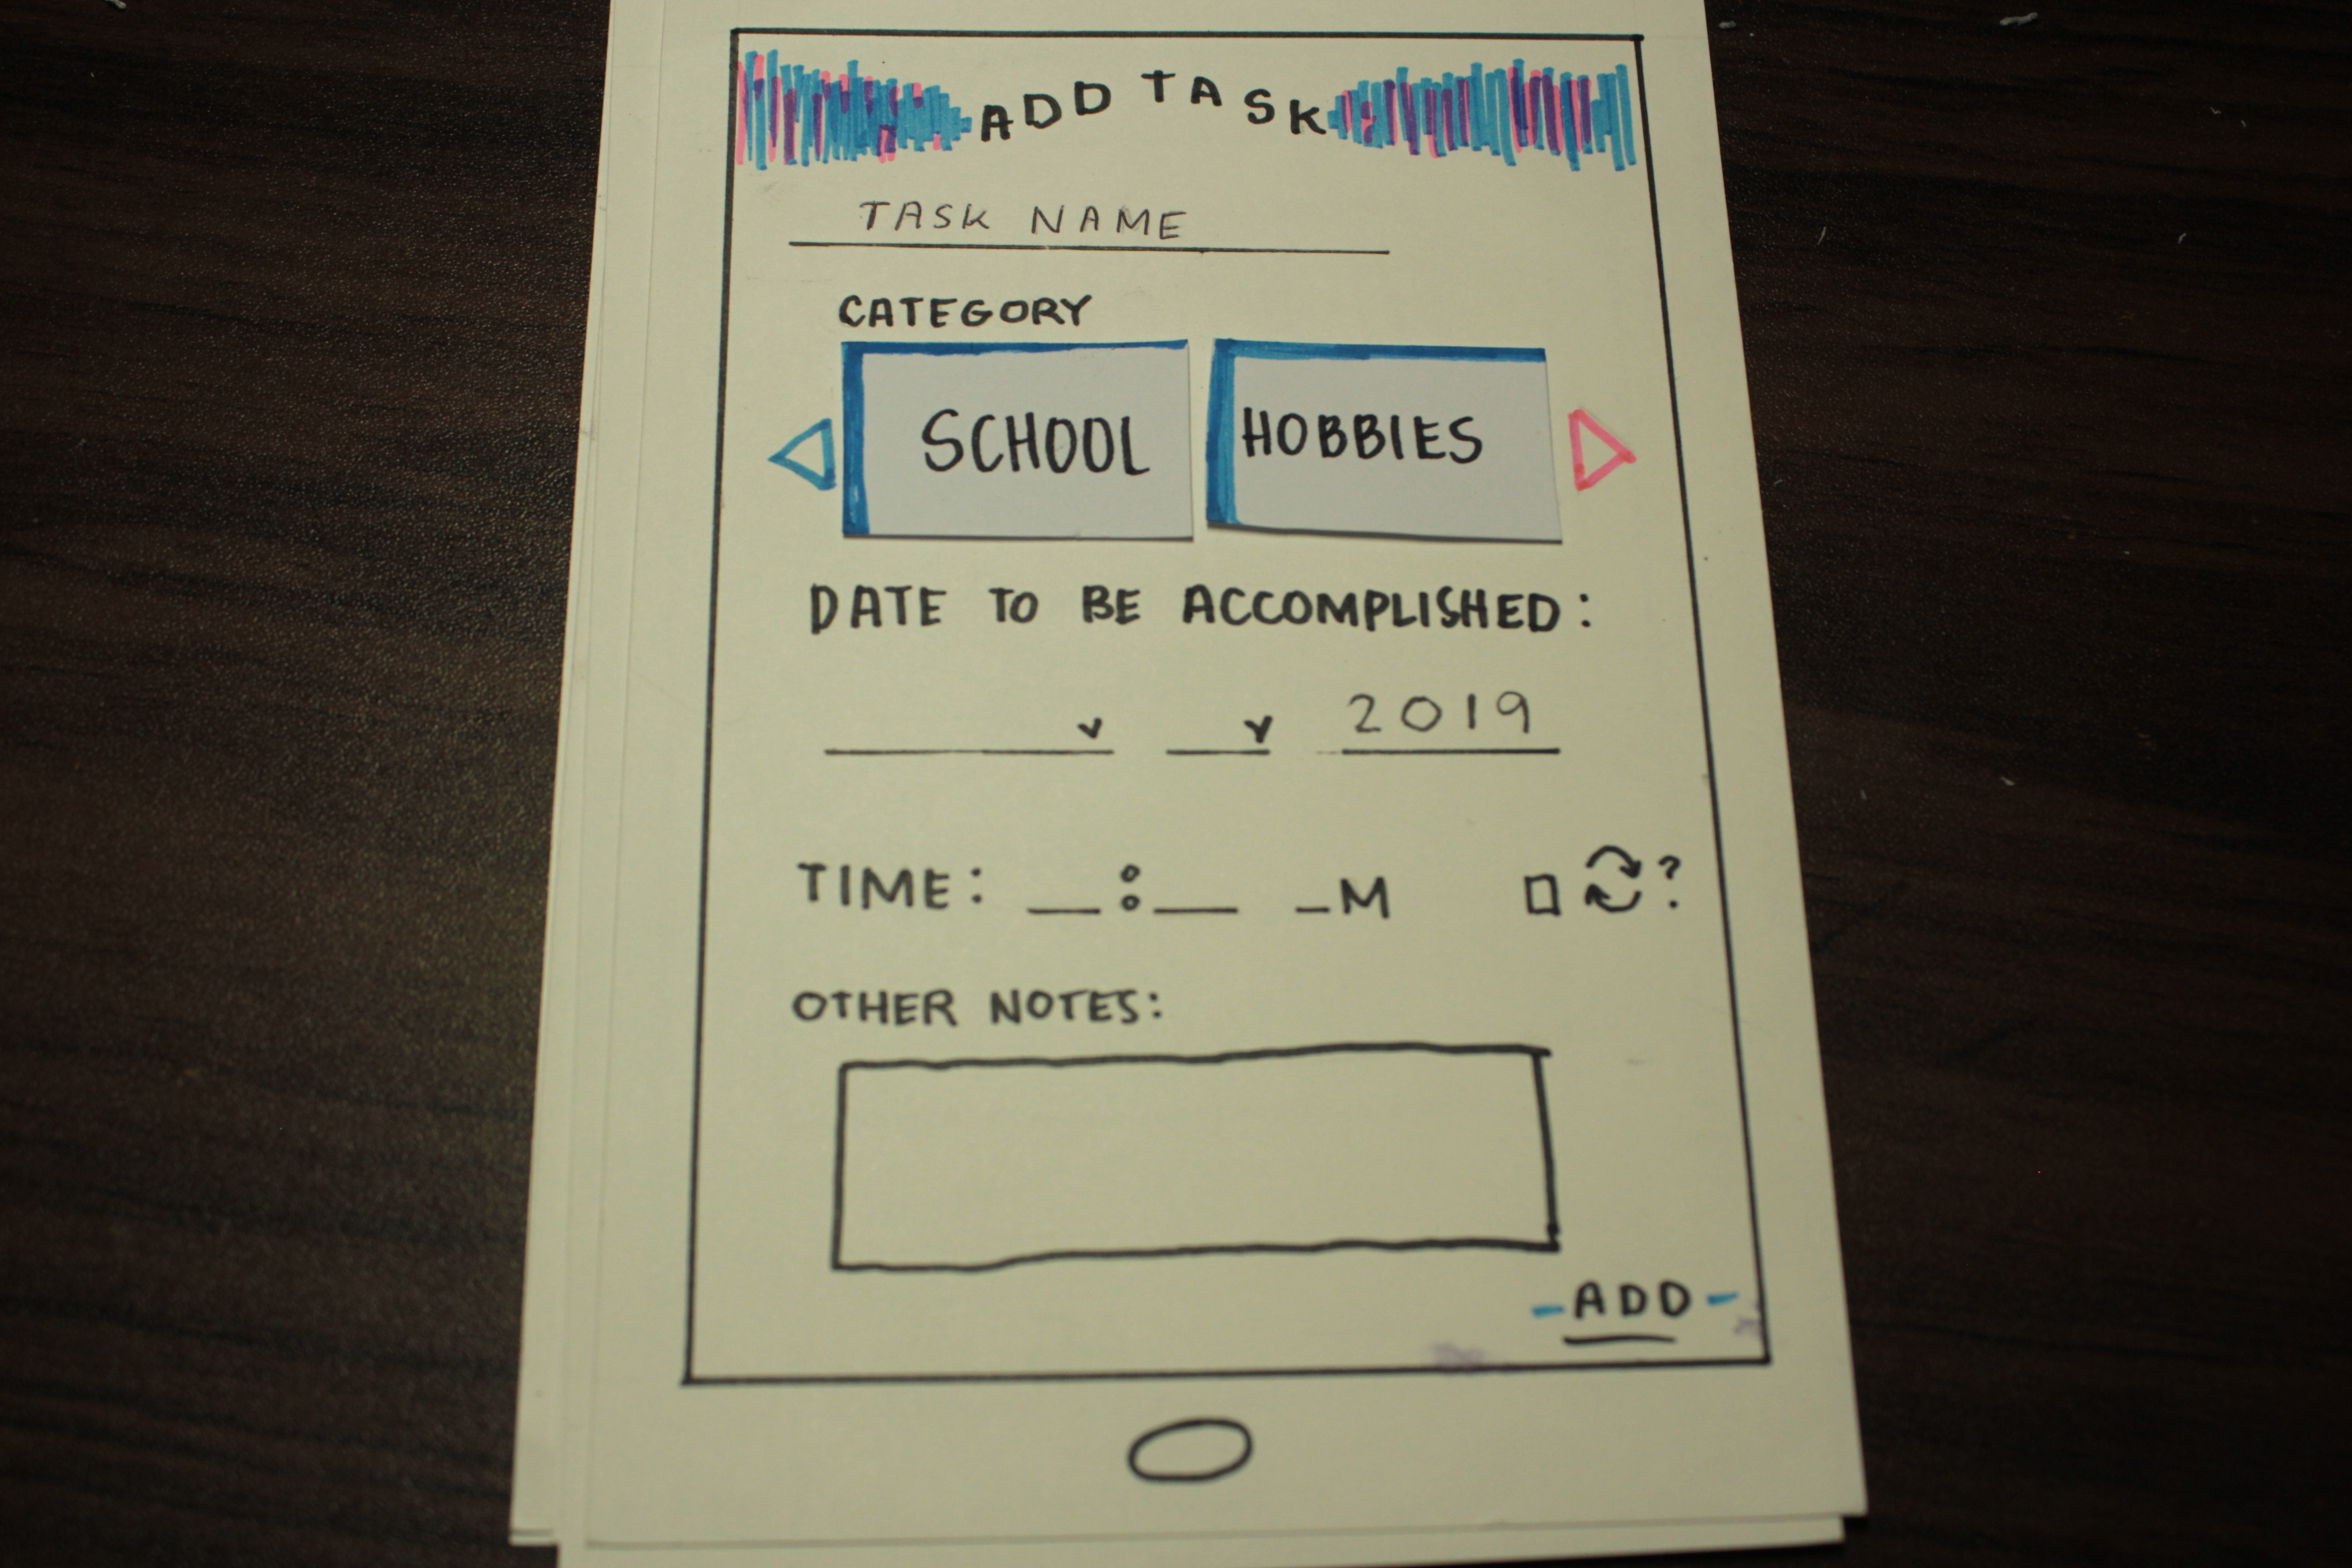 ADD TASK
TASK NAME
CATEGORY
SCHOOL HOBBIES
DATE TO BE ACCOMPLISHED:
2019
TIME: __:__ _M ?
OTHER NOTES:
-ADD-